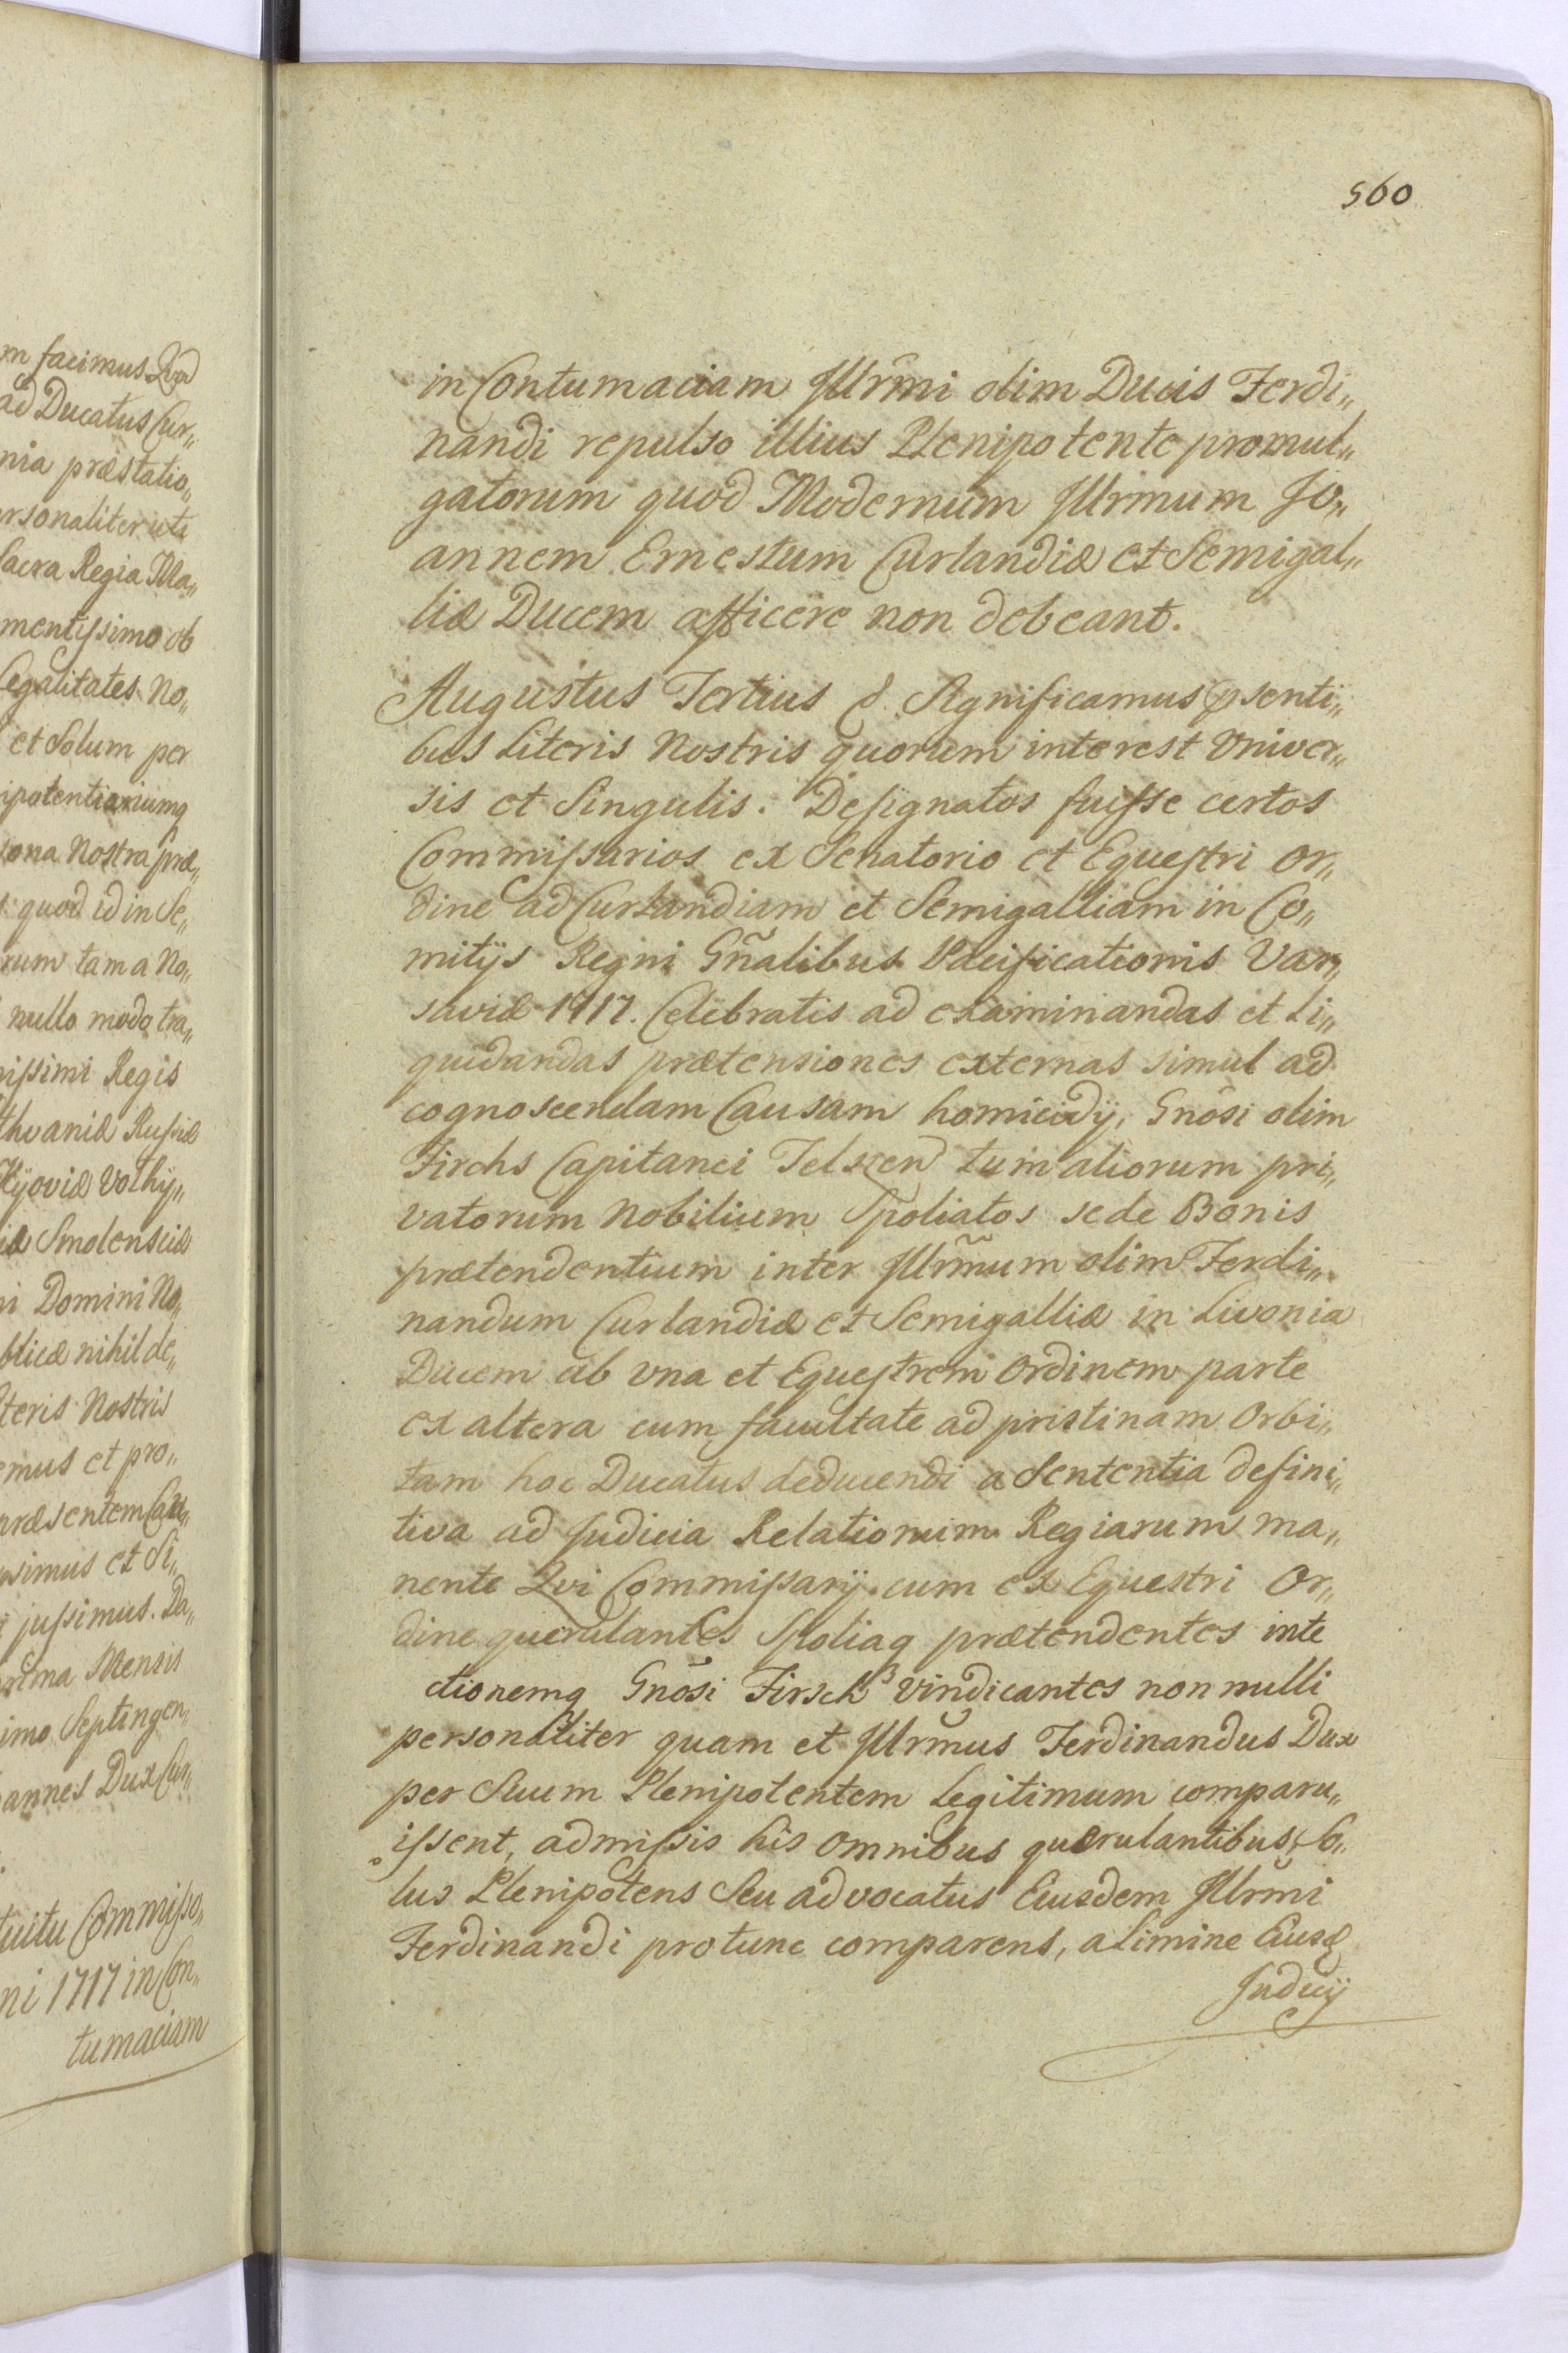 m facimus Qvod
ad Ducatus Cur„
nia præstatio„
ersonaliter uti
Sacra Regia Ma„
mentissimo ob
Legalitates No„
et Solum per
ipotentiariumq
sona Nostra præ„
quod id in Se„
rum tam a No„
nullo modo tra„
nissimi Regis
thvaniæ Russiæ
Kijoviæ Volhÿ„
iæ Smolensciæ
ni Domini No„
blicæ nihil de„
teris Nostris
emus et pro„
præsentem Cau„
usimus et Si„
jussimus. Da„
prima Mensis
imo Septingen„
annes Dux Cur„
tuitu Commisso„
ni 1717 in Con„
tumaciam
560
in Contumaciam Illrmi olim Ducis Ferdi„
nandi repulso illius Plenipotente promul„
gatorum quod Modernum Illrmum Jo„
annem Ernestum Curlandiæ et Semigal„
liæ Ducem afficere non debeant.
Augustus Tertius &. Significamus psenti„
bus Literis Nostris quorum interest Univer„
sis et Singulis. Designatos fuisse certos
Commissarios ex Senatorio et Equestri or„
dine ad Curlandiam et Semigalliam in Co„
mitijs Regni Gñalibus Pacificationis Var„
saviæ 1717. Celebratis ad examinandas et Li„
quidandas prætensiones externas simul ad
cognoscendam Causam homicidij, Gnõsi olim
Firchs Capitanei Telszen tum aliorum pri„
vatorum Nobilium Spoliatos se de Bonis
prætendentium inter Illrmum olim Ferdi„
nandum Curlandiæ et Semigalliæ in Livonia
Ducem ab una et Equestrem Ordinem parte
ex altera cum facultate ad pristinam Orbi„
tam hoc Ducatus deducendi a Sententia defini„
tiva ad Judicia Relationum Regiarum ma„
nente Qvi Commissarij cum ex Equestri Or„
dine querulantes Spoliaq prætendentes inte
ctionemq Gnõsi Firsch vindicantes non nulli
personaliter quam et Illrmus Ferdinandus Dux
per Suum Plenipotentem Legitimum comparu„
issent, admissis his omnibus quærulantibus, So„
lus Plenipotens Seu advocatus Eiusdem Illrmi
Ferdinandi pro tunc comparens, a limine Eiusd
Judicij